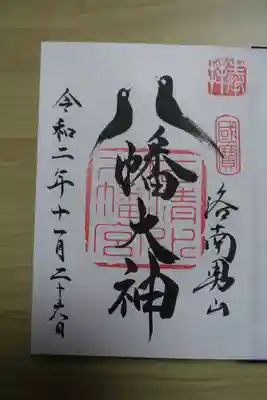 國寶
洛南男山
八幡大神
石清水
八幡宮
令和二年十一月二十六日